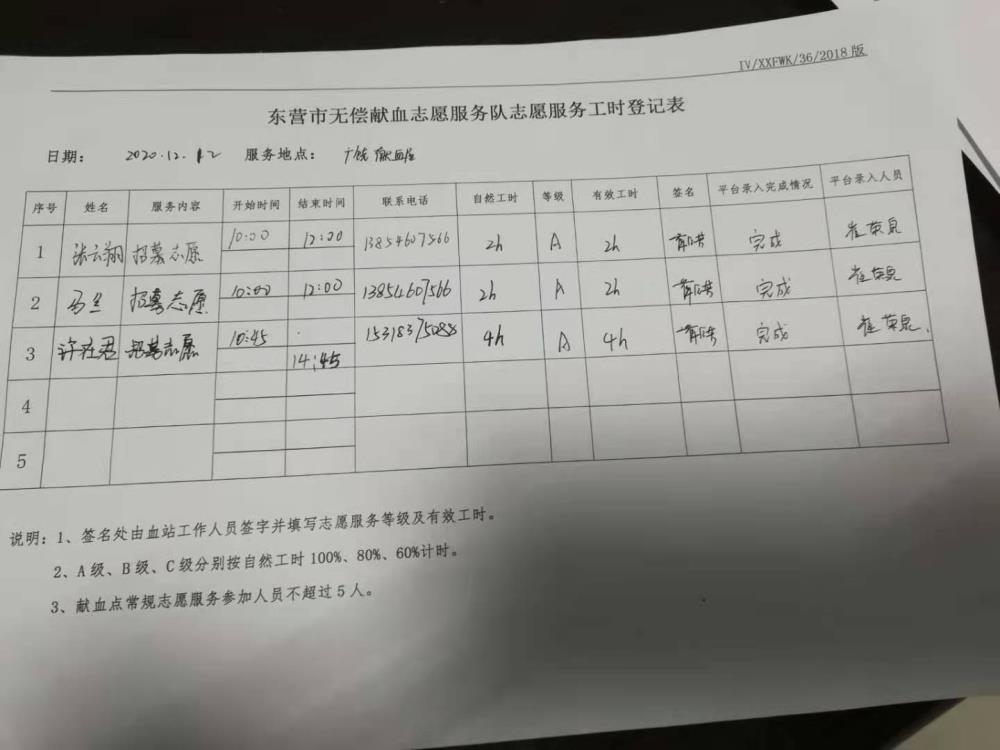 IV/XXFWK/36/2018版
东营市无偿献血志愿服务队志愿服务工时登记表
日期： 2020.12.12 服务地点： 献血屋
序号 姓名 服务内容 开始时间 结束时间 联系电话 自然工时 等级 有效工时 签名 平台录入完成情况 平台录入人员
1 张云翔 招募志愿 10:00 12:00 13854607566 2h A 2h 完成 崔荣泉
2 马兰 招募志愿 10:00 12:00 13854607566 2h A 2h 完成 崔荣泉
3 招募志愿 10:45 14:45 15318375088 4h A 4h 完成 崔荣泉
4
5
说明：1、签名处由血站工作人员签字并填写志愿服务等级及有效工时。
2、A级、B级、C级分别按自然工时100%、80%、60%计时。
3、献血点常规志愿服务参加人员不超过5人。